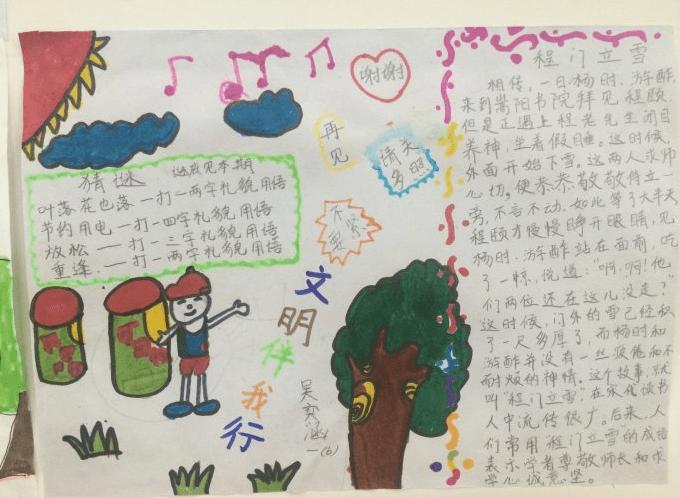 谢谢
再见
请关
多照
不要
紧
猜谜 谜底见本期
叶落花也落—打一两字礼貌用语
节约用电—打一四字礼貌用语
放松——打一三字礼貌用语
重逢.—打一两字礼貌用语
文明伴我行
吴奕涵
一(6)
程门立雪
相传，一日杨时、游酢，
来到嵩阳书院拜见程颐，
但是正遇上程老先生闭目
养神，坐着假睡。这时候，
外面开始下雪。这两人求师
心切，便恭恭敬敬侍立一
旁，不言不动，如此等了大半天，
程颐才慢慢睁开眼睛，见
杨时、游酢站在面前，吃
了一惊，说道：“啊，啊！他
们两位还在这儿没走？”
这时候，门外的雪已经积
了一尺多厚了，而杨时和
游酢并没有一丝疲倦和不
耐烦的神情。这个故事，就
叫“程门立雪”在宋代读书
人中流传很广。后来，人
们常用“程门立雪”的成语
表示学者尊敬师长和求
学心诚意坚。